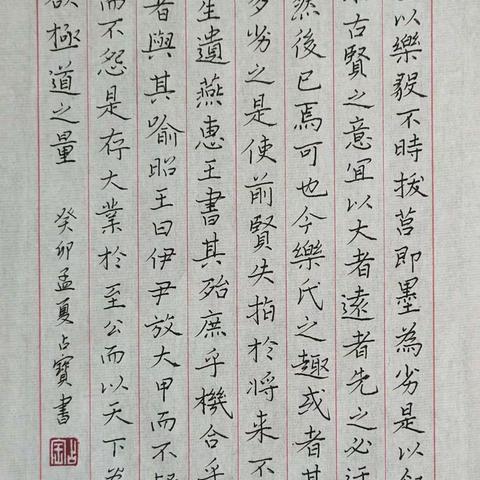 以樂毅不時拔莒即墨為劣是以
古賢之意宜以大者遠者先之必迂
然後已焉可也今樂氏之趣或者其
多劣之是使前賢失指於将来不
生遺燕惠王書其殆庶乎機合乎
者與其喻昭王曰伊尹放大甲而不疑
而不怨是存大業於至公而以天下為
欲極道之量
癸卯孟夏占寶書